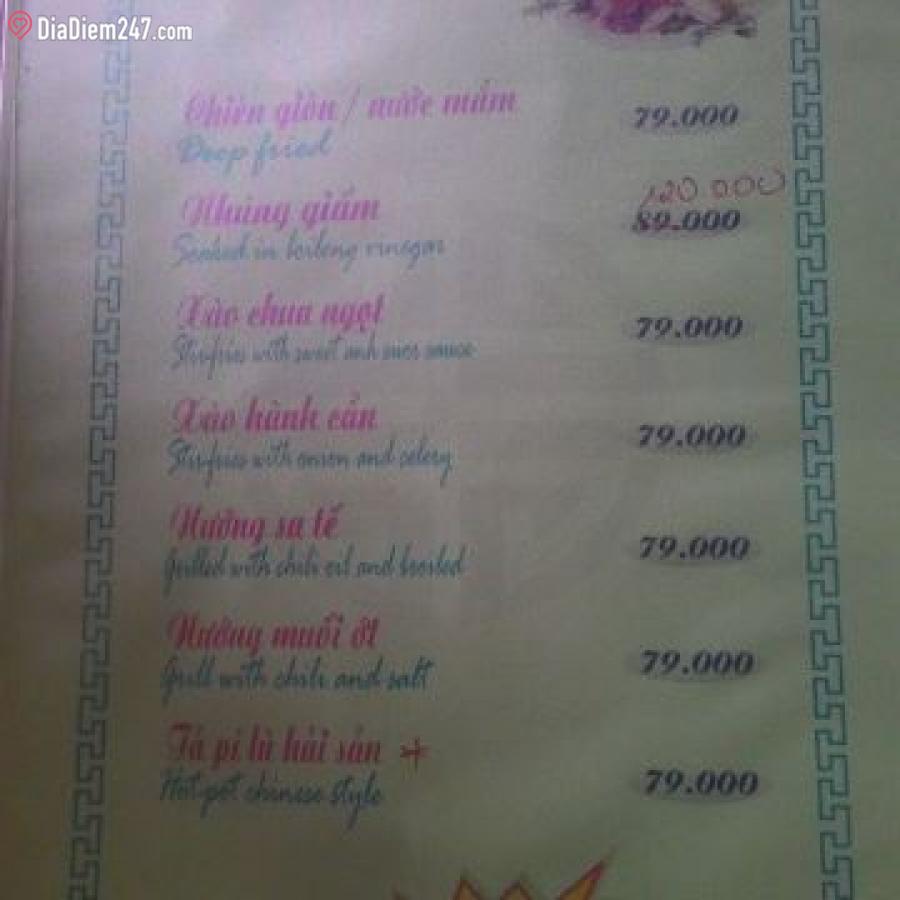 DiaDiem247.com
Chiên giòn / nước mắm 79.000
Deep fried
120 000
Nhúng giấm 89.000
Soaked in boileng vinegar
Xào chua ngọt 79.000
Stirfries with sweet anh suor sauce
Xào hành cần 79.000
Stirfries with onion and celery
Nướng sa tế 79.000
Grilled with chili oil and broiled
Nướng muối ớt 79.000
Grill with chili and salt
Tả pí lù hải sản * 79.000
Hot-pot chinese style